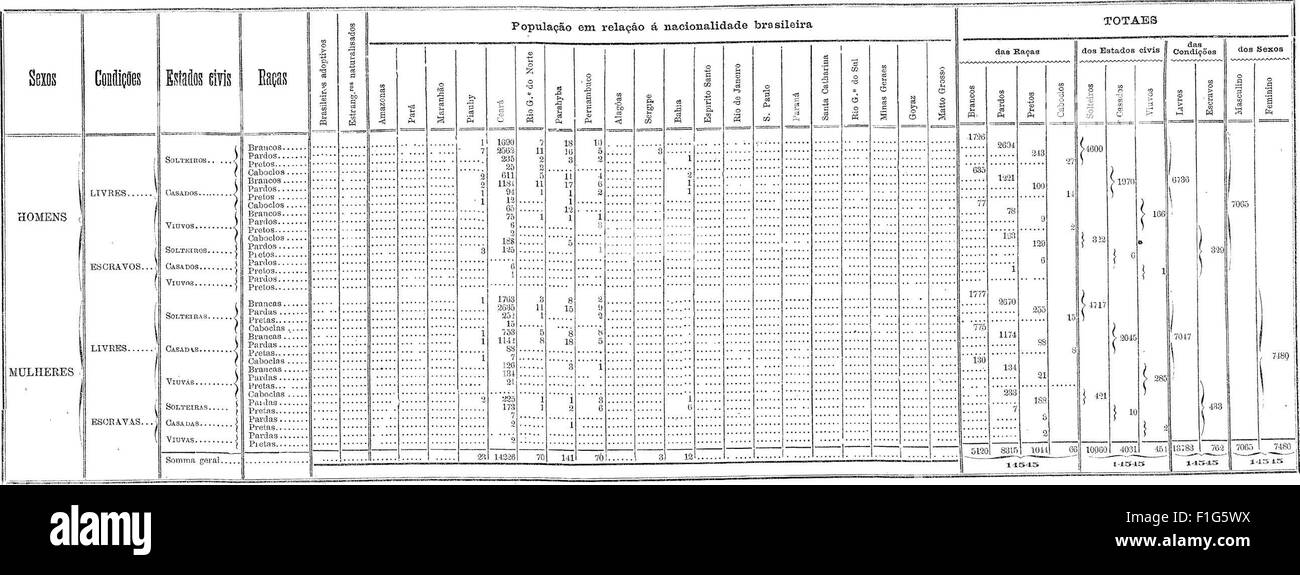 População em relação á nacionalidade brasileira
TOTAES
das Raças
dos Estados civis
das Condições
dos Sexos
Sexos
Condições
Estados civis
Raças
Brasileiros adoptivos
Estrang.ros naturalisados
Amazonas
Pará
Maranhão
Piauhy
Ceará
Rio G.e do Norte
Parahyba
Pernambuco
Alagôas
Sergipe
Bahia
Espirito Santo
Rio de Janeiro
S. Paulo
Paraná
Santa Catharina
Rio G.e do Sul
Minas Geraes
Goyaz
Matto Grosso
Brancos
Pardos
Pretos
Caboclos
Solteiros
Casados
Viuvos
Livres
Escravos
Masculino
Feminino
HOMENS
LIVRES
SOLTEIROS
Brancos 1 1690 7 18 10 1726
Pardos 7 2562 11 16 5 3 2604
Pretos 235 2 3 2 1 243
Caboclos 25 2 27
4600
CASADOS
Brancos 2 611 5 11 4 2 635
Pardos 2 1184 11 17 6 1 1221
Pretos 1 94 1 1 2 1 100
Caboclos 1 12 1 14
1970
VIUVOS
Brancos 65 12 77
Pardos 75 1 1 1 78
Pretos 6 3 9
Caboclos 2 2
166
6736
7065
ESCRAVOS
SOLTEIROS
Pardos 188 5 193
Pretos 3 125 1 129
322
CASADOS
Pardos
Pretos 6 6
6
VIUVOS
Pardos 1 1
Pretos
1
329
MULHERES
LIVRES
SOLTEIRAS
Brancas 1 1763 3 8 2 1777
Pardas 2635 11 15 9 2670
Pretas 252 1 2 255
Caboclas 15 15
4717
CASADAS
Brancas 1 753 5 8 8 775
Pardas 1 1142 8 18 5 1174
Pretas 88 88
Caboclas 1 7 8
2045
VIUVAS
Brancas 126 3 1 130
Pardas 134 134
Pretas 21 21
Caboclas
285
7047
7480
ESCRAVAS
SOLTEIRAS
Pardas 2 225 1 1 3 1 233
Pretas 173 1 2 6 6 188
421
CASADAS
Pardas 7 7
Pretas 2 1 3
10
VIUVAS
Pardas
Pretas 2 2
2
433
Somma geral 23 14226 70 141 70 3 12 5120 8315 1044 66 10060 4031 454 13783 762 7065 7480
14545 14545 14545 14545
alamy
alamy stock photo
F1G5WX
www.alamy.com